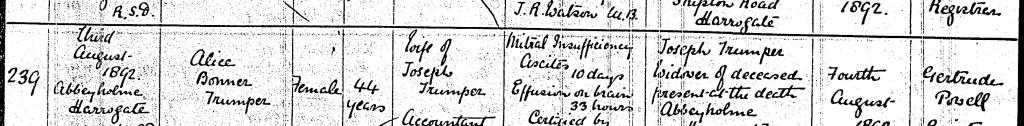 R.S.D.
J.R. Watson M.B.
Skipton Road
Harrogate
1892.
Registrar
239
Third
August
1892
Abbeyholme
Harrogate
Alice
Bonner
Trumper
Female
44
years
Wife of
Joseph
Trumper
Accountant
Mitral Insufficiency
Ascites
10 days
Effusion on brain
33 hours
Certified by
Joseph Trumper
Widower of deceased
present at the death
Abbeyholme
Fourth
August
Gertrude
Powell